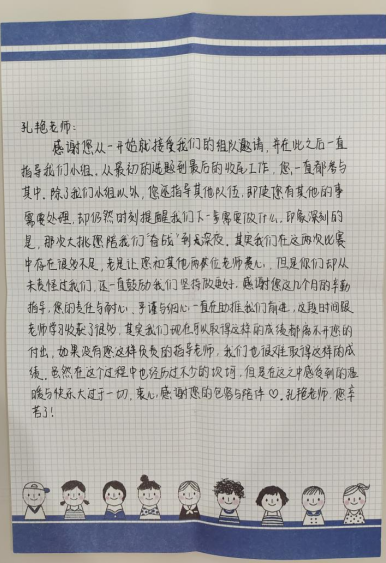 孔艳老师:
感谢您从一开始就接受我们的组队邀请,并在此之后一直
指导我们小组,从最初的选题到最后的收尾工作,您一直都参与
其中。除了我们小组以外,您还指导其他队伍,即使您有其他的事
需要处理,却仍然时刻提醒我们下一步需要做什么。印象深刻的
是,那次大挑您陪我们“奋战”到大深夜,其实我们在这两次比赛
中存在很多不足,老是让您和其他两位老师费心,但是你们却从
未责怪过我们,还一直鼓励我们坚持做更好。感谢您这几个月的辛勤
指导,您的责任与耐心,严谨与细心一直在助推我们前进,这段时间跟
老师学习收获了很多,其实我们现在可以取得这样的成绩都离不开您的
付出,如果没有您这样负责的指导老师,我们也很难取得这样的成
绩。虽然在这个过程中也经历过不少的坎坷,但是在这之中感受到的温
暖与快乐大过于一切。衷心感谢您的包容与陪伴♡。孔艳老师,您辛
苦了!